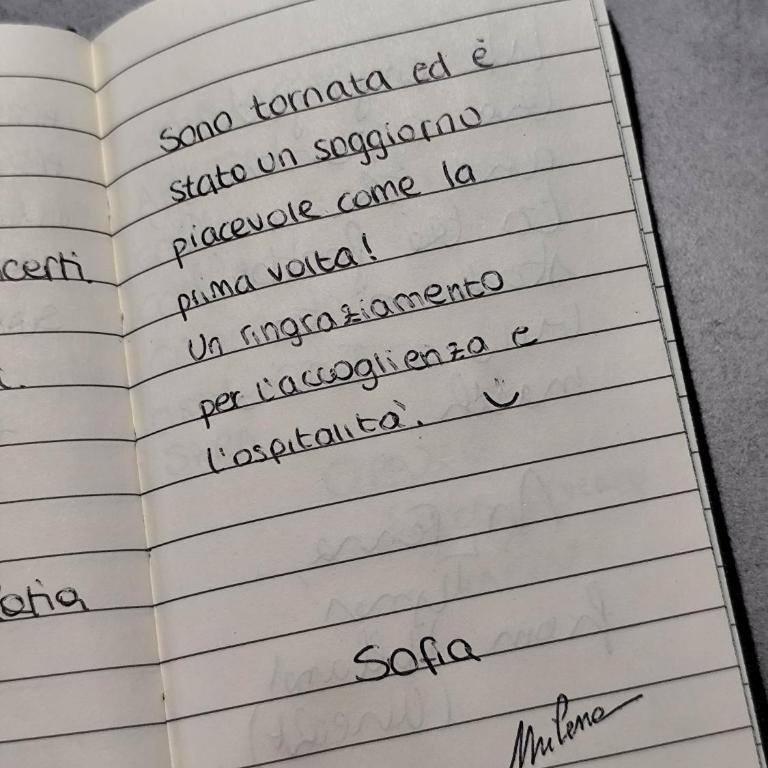 certi.
oria
Sono tornata ed è
stato un soggiorno
piacevole come la
prima volta!
Un ringraziamento
per l'accoglienza e
l'ospitalità.
Sofia
Milena